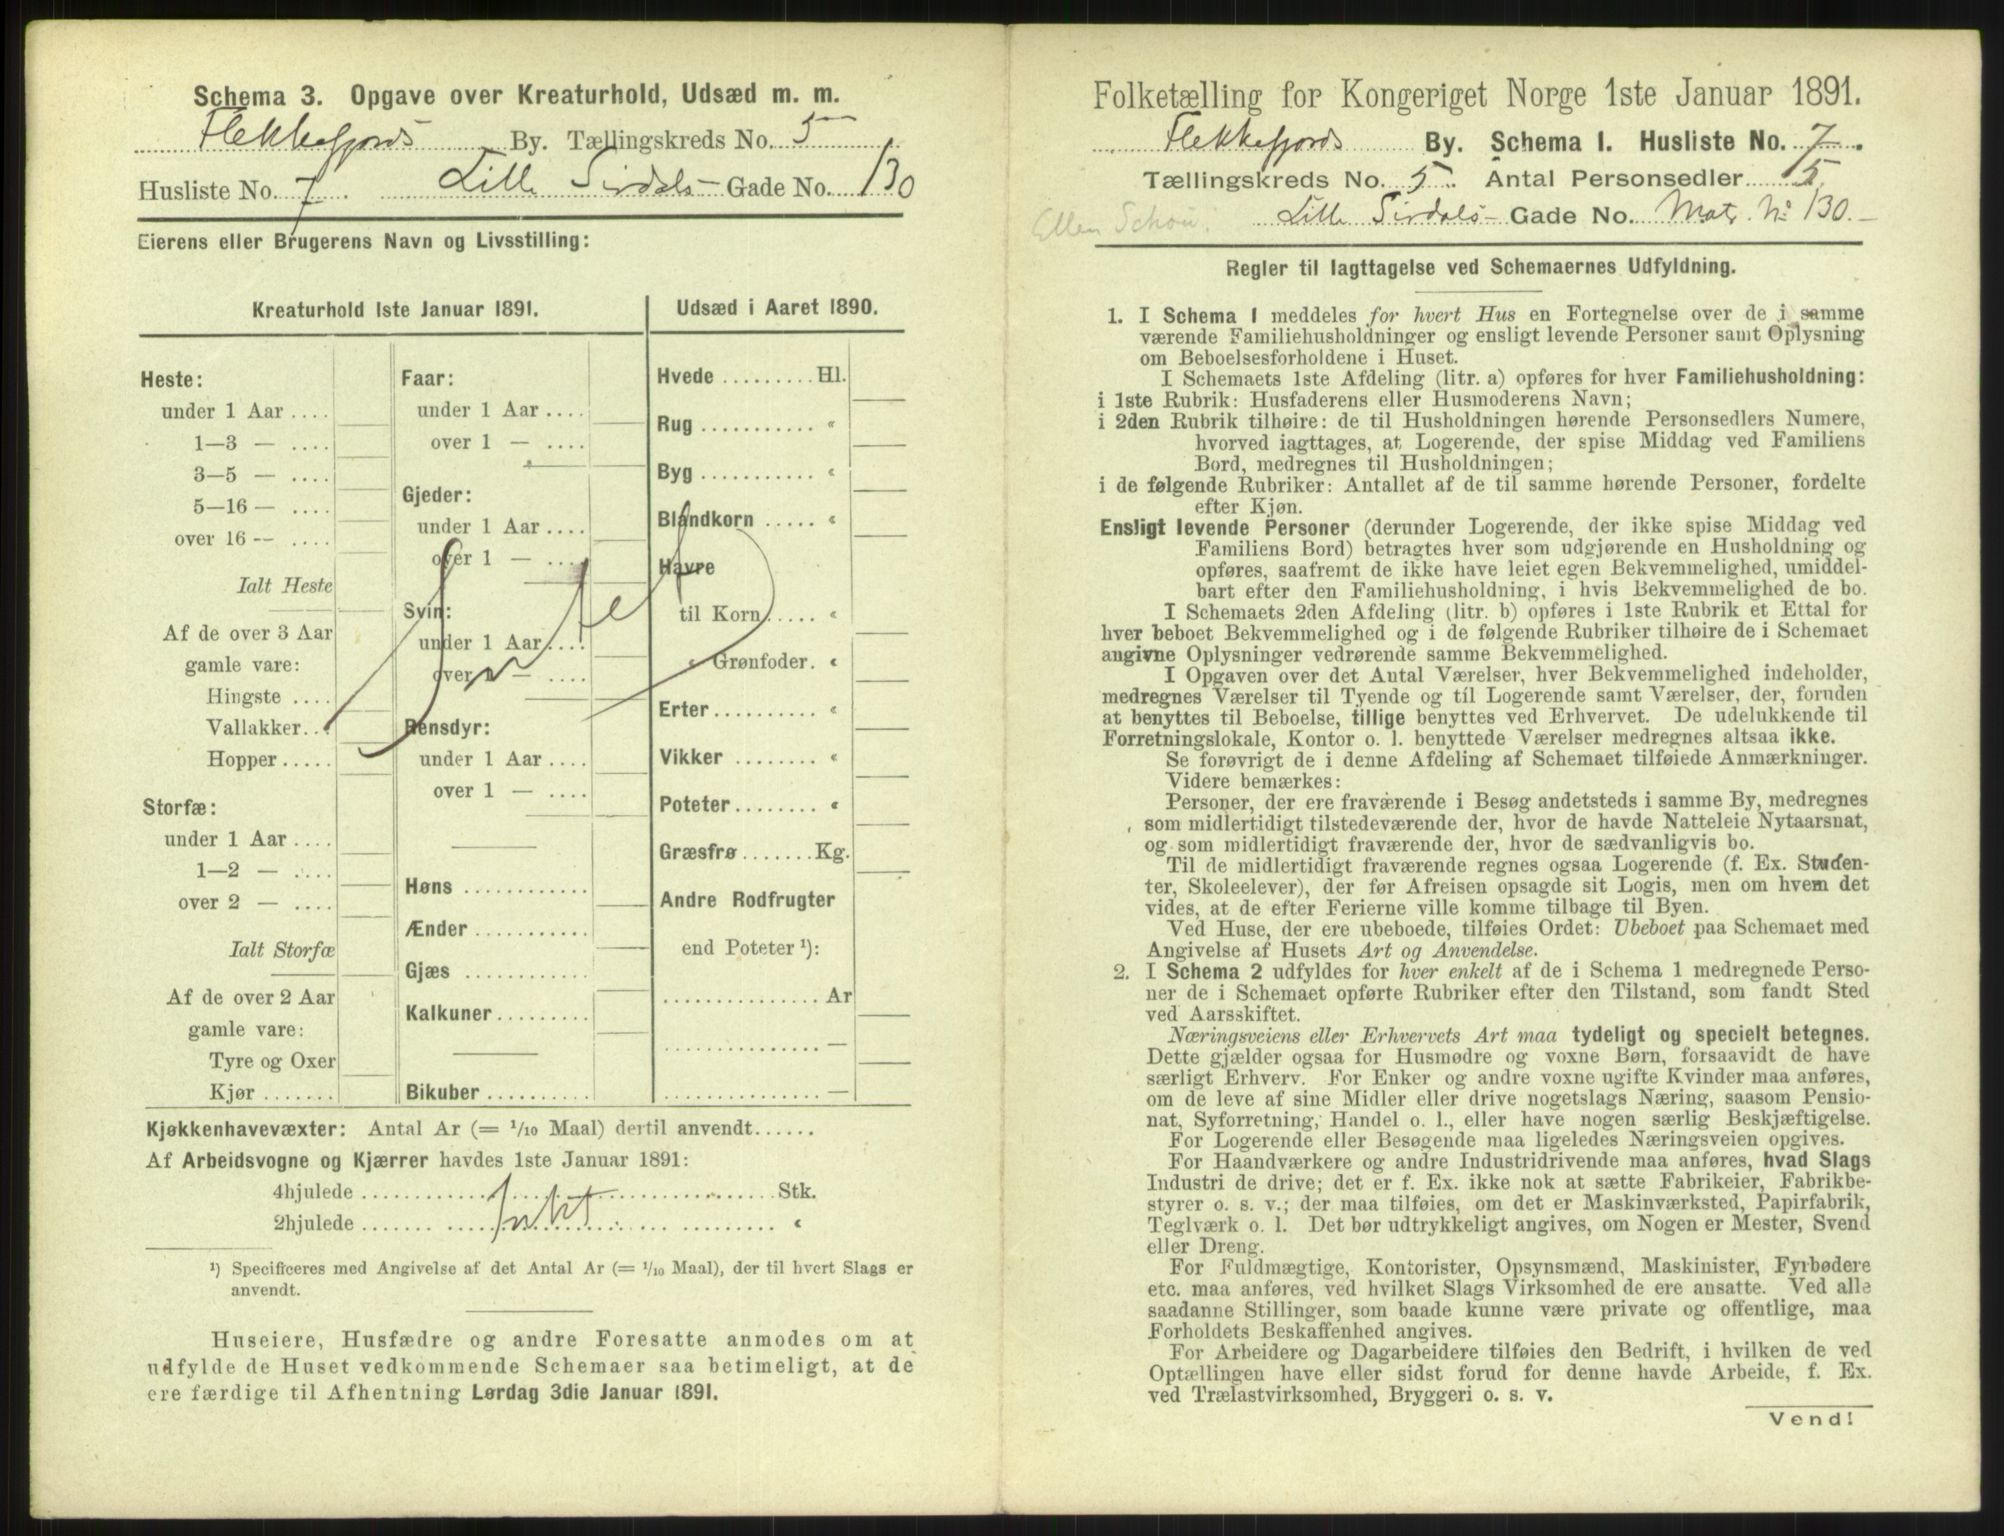 Schema 3. Opgave over Kreaturhold, Udsæd m. m.
Flekkefjords By. Tællingskreds No. 5
Husliste No. 7. Lille Sirdals- Gade No. 130
Eierens eller Brugerens Navn og Livsstilling:
Kreaturhold 1ste Januar 1891.
Heste:
under 1 Aar ....
1—3 — ....
3—5 — ....
5—16 — ....
over 16 — ....
Ialt Heste
Af de over 3 Aar
gamle vare:
Hingste ....
Vallakker...
Hopper.....
Storfæ:
under 1 Aar ....
1—2 — ....
over 2 — ....
Ialt Storfæ
Af de over 2 Aar
gamle vare:
Tyre og Oxer
Kjør .......
Faar:
under 1 Aar ....
over 1 — ....
Gjeder:
under 1 Aar ....
over 1 — ....
Svin:
under 1 Aar ....
over 1 — ....
Rensdyr:
under 1 Aar ....
over 1 — ....
Høns ............
Ænder ...........
Gjæs ............
Kalkuner.........
Bikuber ..........
Udsæd i Aaret 1890.
Hvede ......... Hl.
Rug ........... “
Byg ........... “
Blandkorn ..... “
Havre
til Korn...... “
“ Grønfoder. “
Erter .......... “
Vikker ........ “
Poteter........ “
Græsfrø ....... Kg.
Andre Rodfrugter
end Poteter ¹):
............... Ar
............... —
............... —
Kjøkkenhavevæxter: Antal Ar (= 1/10 Maal) dertil anvendt......
Af Arbeidsvogne og Kjærrer havdes 1ste Januar 1891:
4hjulede .................... Stk.
2hjulede ....... Intet ....... “
¹) Specificeres med Angivelse af det Antal Ar (= 1/10 Maal), der til hvert Slags er
anvendt.
Huseiere, Husfædre og andre Foresatte anmodes om at
udfylde de Huset vedkommende Schemaer saa betimeligt, at de
ere færdige til Afhentning Lørdag 3die Januar 1891.
Folketælling for Kongeriget Norge 1ste Januar 1891.
Flekkefjords By. Schema I. Husliste No. 7.
Tællingskreds No. 5. Antal Personsedler 5.
Ellen Schou. Lille Sirdals- Gade No. Matr. No 130.-
Regler til Iagttagelse ved Schemaernes Udfyldning.
1. I Schema I meddeles for hvert Hus en Fortegnelse over de i samme
værende Familiehusholdninger og ensligt levende Personer samt Oplysning
om Beboelsesforholdene i Huset.
I Schemaets 1ste Afdeling (litr. a) opføres for hver Familiehusholdning:
i 1ste Rubrik: Husfaderens eller Husmoderens Navn;
i 2den Rubrik tilhøire: de til Husholdningen hørende Personsedlers Numere,
hvorved iagttages, at Logerende, der spise Middag ved Familiens
Bord, medregnes til Husholdningen;
i de følgende Rubriker: Antallet af de til samme hørende Personer, fordelte
efter Kjøn.
Ensligt levende Personer (derunder Logerende, der ikke spise Middag ved
Familiens Bord) betragtes hver som udgjørende en Husholdning og
opføres, saafremt de ikke have leiet egen Bekvemmelighed, umiddel-
bart efter den Familiehusholdning, i hvis Bekvemmelighed de bo.
I Schemaets 2den Afdeling (litr. b) opføres i 1ste Rubrik et Ettal for
hver beboet Bekvemmelighed og i de følgende Rubriker tilhøire de i Schemaet
angivne Oplysninger vedrørende samme Bekvemmelighed.
I Opgaven over det Antal Værelser, hver Bekvemmelighed indeholder,
medregnes Værelser til Tyende og til Logerende samt Værelser, der, foruden
at benyttes til Beboelse, tillige benyttes ved Erhvervet. De udelukkende til
Forretningslokale, Kontor o. l. benyttede Værelser medregnes altsaa ikke.
Se forøvrigt de i denne Afdeling af Schemaet tilføiede Anmærkninger.
Videre bemærkes:
Personer, der ere fraværende i Besøg andetsteds i samme By, medregnes
som midlertidigt tilstedeværende der, hvor de havde Natteleie Nytaarsnat,
og som midlertidigt fraværende der, hvor de sædvanligvis bo.
Til de midlertidigt fraværende regnes ogsaa Logerende (f. Ex. Studen-
ter, Skoleelever), der før Afreisen opsagde sit Logis, men om hvem det
vides, at de efter Ferierne ville komme tilbage til Byen.
Ved Huse, der ere ubeboede, tilføies Ordet: Ubeboet paa Schemaet med
Angivelse af Husets Art og Anvendelse.
2. I Schema 2 udfyldes for hver enkelt af de i Schema 1 medregnede Perso-
ner de i Schemaet opførte Rubriker efter den Tilstand, som fandt Sted
ved Aarsskiftet.
Næringsveiens eller Erhvervets Art maa tydeligt og specielt betegnes.
Dette gjælder ogsaa for Husmødre og voxne Børn, forsaavidt de have
særligt Erhverv. For Enker og andre voxne ugifte Kvinder maa anføres,
om de leve af sine Midler eller drive nogetslags Næring, saasom Pensio-
nat, Syforretning, Handel o. l., eller have nogen særlig Beskjæftigelse.
For Logerende eller Besøgende maa ligeledes Næringsveien opgives.
For Haandværkere og andre Industridrivende maa anføres, hvad Slags
Industri de drive; det er f. Ex. ikke nok at sætte Fabrikeier, Fabrikbe-
styrer o. s. v.; der maa tilføies, om det er Maskinværksted, Papirfabrik,
Teglværk o. l. Det bør udtrykkeligt angives, om Nogen er Mester, Svend
eller Dreng.
For Fuldmægtige, Kontorister, Opsynsmænd, Maskinister, Fyrbødere
etc. maa anføres, ved hvilket Slags Virksomhed de ere ansatte. Ved alle
saadanne Stillinger, som baade kunne være private og offentlige, maa
Forholdets Beskaffenhed angives.
For Arbeidere og Dagarbeidere tilføies den Bedrift, i hvilken de ved
Optællingen have eller sidst forud for denne havde Arbeide, f. Ex.
ved Trælastvirksomhed, Bryggeri o. s. v.
Vend!